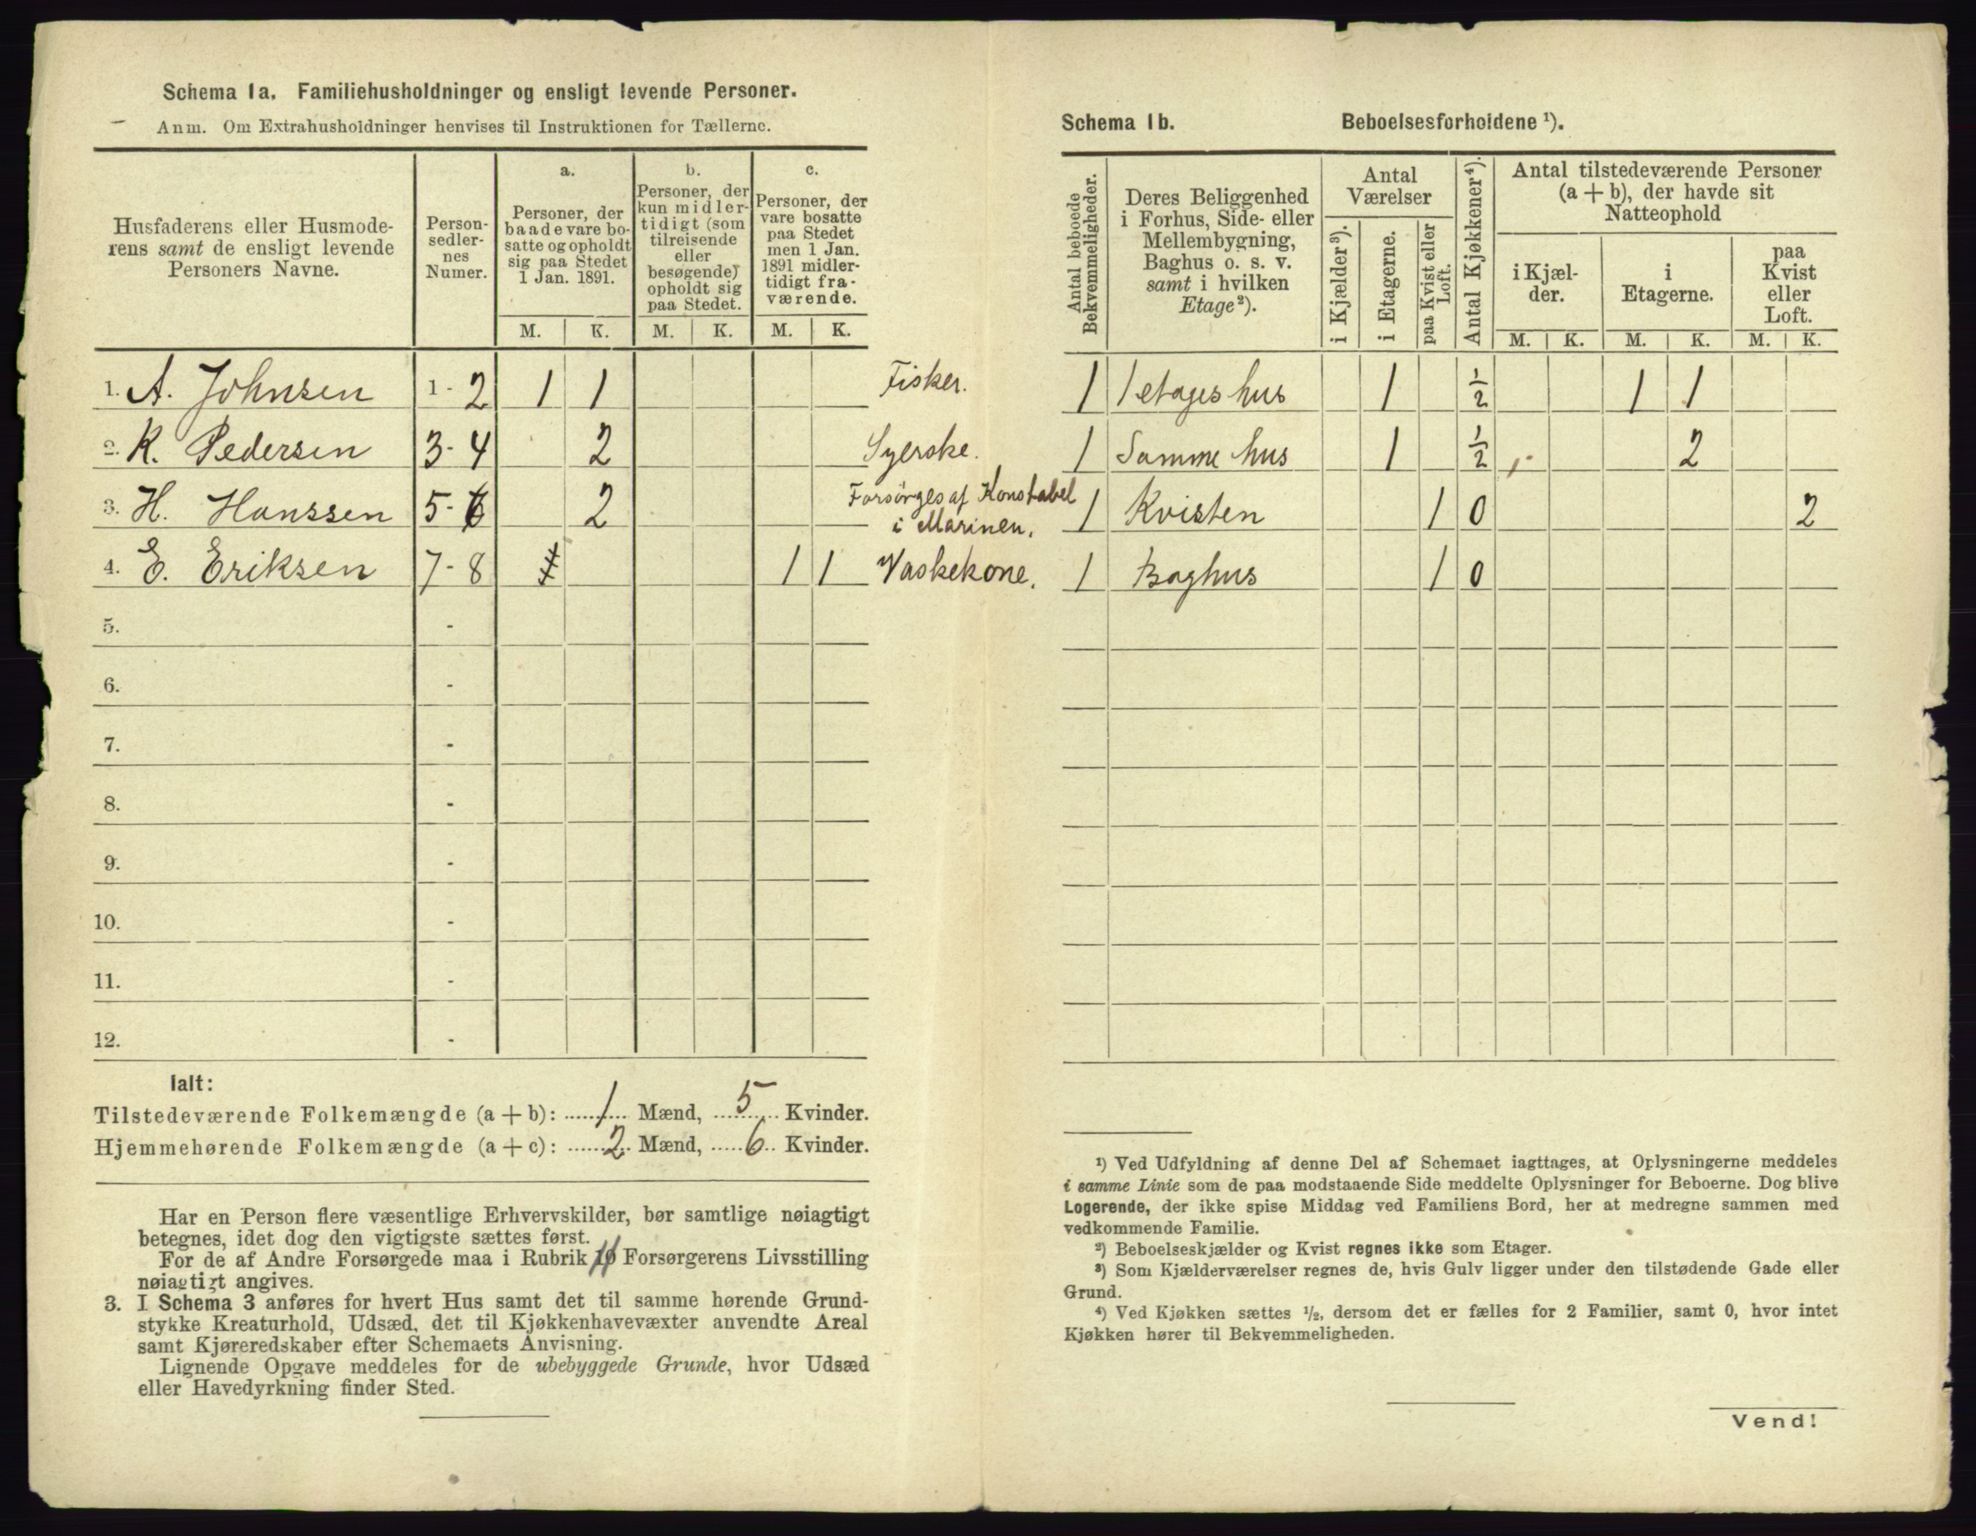 Schema 1a. Familiehusholdninger og ensligt levende Personer.
Anm. Om Extrahusholdninger henvises til Instruktionen for Tællerne.
Husfaderens eller Husmode-
rens samt de ensligt levende
Personers Navne.
Person-
sedler-
nes
Numer.
a.
Personer, der
baade vare bo-
satte og opholdt
sig paa Stedet
1 Jan. 1891.
b.
Personer, der
kun midler-
tidigt (som
tilreisende
eller
besøgende)
opholdt sig
paa Stedet.
c.
Personer, der
vare bosatte
paa Stedet
men 1 Jan.
1891 midler-
tidigt fra-
værende.
M. K. M. K. M. K.
1. A. Johnsen 1 - 2 1 1 Fisker.
2. K. Pedersen 3 - 4 2 Syerske.
3. H. Hanssen 5 - 6 2 Forsørges af Konstabel
i Marinen.
4. E. Eriksen 7 - 8 1 1 Vaskekone.
5. -
6. -
7. -
8. -
9. -
10. -
11. -
12. -
Ialt:
Tilstedeværende Folkemængde (a + b): 1 Mænd, 5 Kvinder.
Hjemmehørende Folkemængde (a + c): 2 Mænd, 6 Kvinder.
Har en Person flere væsentlige Erhvervskilder, bør samtlige nøiagtigt
betegnes, idet dog den vigtigste sættes først.
For de af Andre Forsørgede maa i Rubrik Forsørgerens Livsstilling
nøiagtigt angives.
3. I Schema 3 anføres for hvert Hus samt det til samme hørende Grund-
stykke Kreaturhold, Udsæd, det til Kjøkkenhavevæxter anvendte Areal
samt Kjøreredskaber efter Schemaets Anvisning.
Lignende Opgave meddeles for de ubebyggede Grunde, hvor Udsæd
eller Havedyrkning finder Sted.
Schema 1b. Beboelsesforholdene ¹).
Antal beboede
Bekvemmeligheder.
Deres Beliggenhed
i Forhus, Side- eller
Mellembygning,
Baghus o. s. v.
samt i hvilken
Etage²).
Antal
Værelser
i Kjælder³).
i Etagerne.
paa Kvist eller
Loft.
Antal Kjøkkener⁴).
Antal tilstedeværende Personer
(a + b), der havde sit
Natteophold
i Kjæl-
der.
i
Etagerne.
paa
Kvist
eller
Loft.
M. K. M. K. M. K.
1 1 etages hus 1 ½ 1 1
1 Samme hus 1 ½ 2
1 Kvisten 1 0 2
1 Baghus 1 0
¹) Ved Udfyldning af denne Del af Schemaet iagttages, at Oplysningerne meddeles
i samme Linie som de paa modstaaende Side meddelte Oplysninger for Beboerne. Dog blive
Logerende, der ikke spise Middag ved Familiens Bord, her at medregne sammen med
vedkommende Familie.
²) Beboelseskjælder og Kvist regnes ikke som Etager.
³) Som Kjælderværelser regnes de, hvis Gulv ligger under den tilstødende Gade eller
Grund.
⁴) Ved Kjøkken sættes ½, dersom det er fælles for 2 Familier, samt 0, hvor intet
Kjøkken hører til Bekvemmeligheden.
Vend!